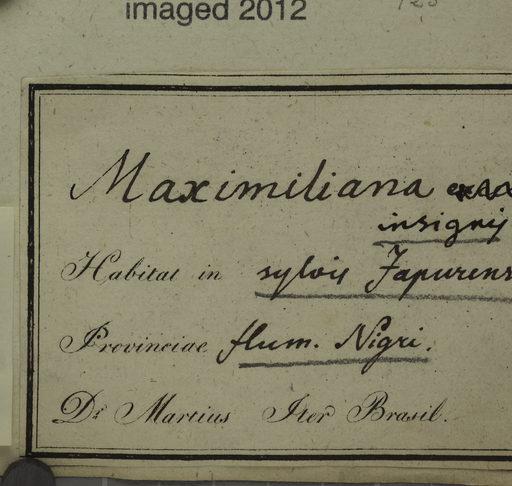 imaged 2012
Maximiliana
insignis
Habitat in sylvis Japurens
Provinciae flum. Nigri.
Dr. Martius Iter Brasil.